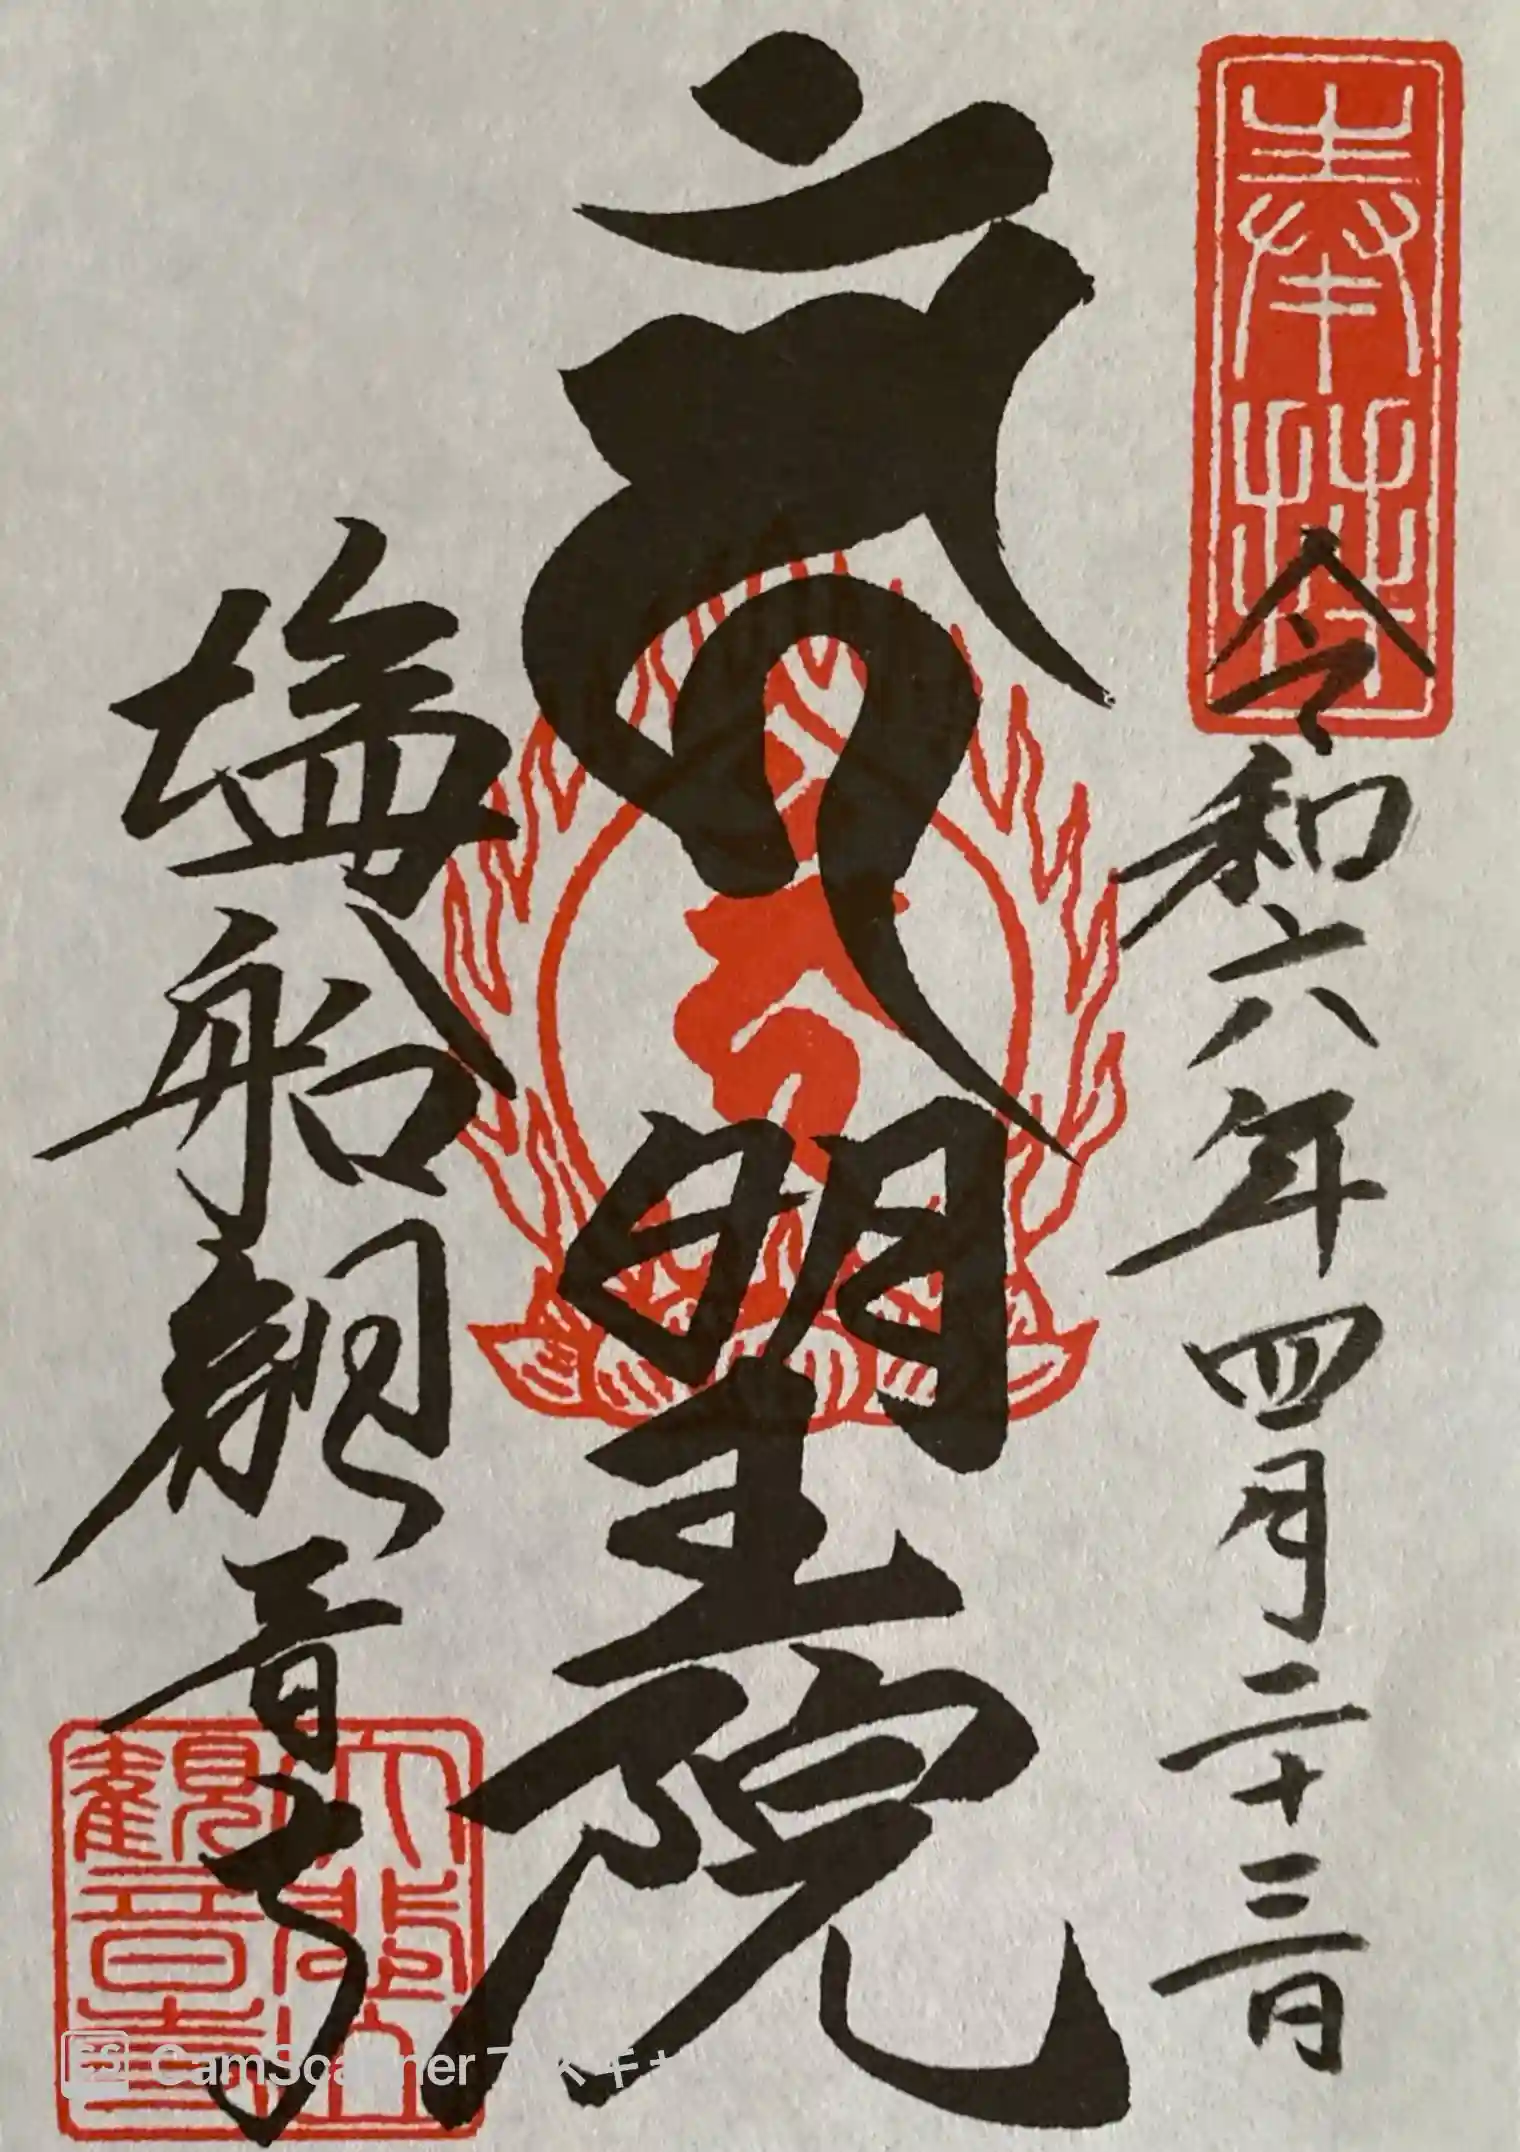 奉拝
令和六年四月二十三日
明王院
塩船観音寺
大悲山
観音寺
CS CamScanner でスキャ